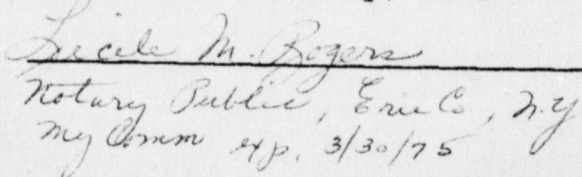 Lucile M. Rogers
Notary Public, Erie Co, N.Y
My Comm exp. 3/30/75